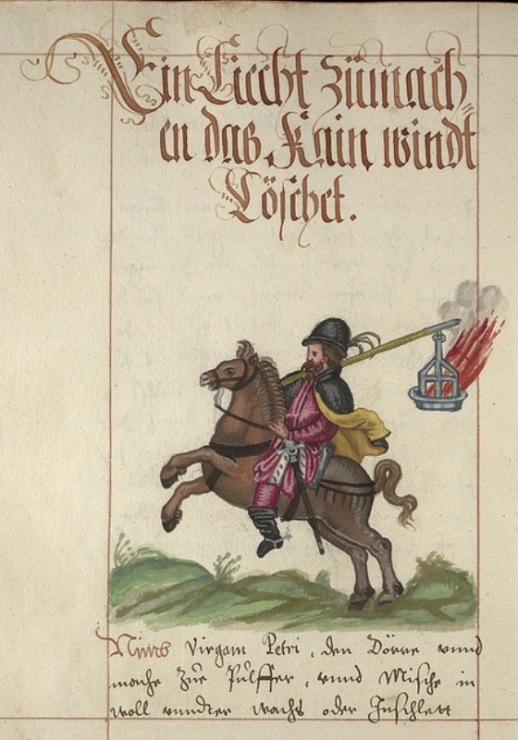 Ein Liecht zůmach„
en das Kain windt
Löschet.
Nimb Virgam Petri, den Dörre vnnd
mache Zue Pulffer, vnnd Mische in
woll vnndter wachs oder Inschlett